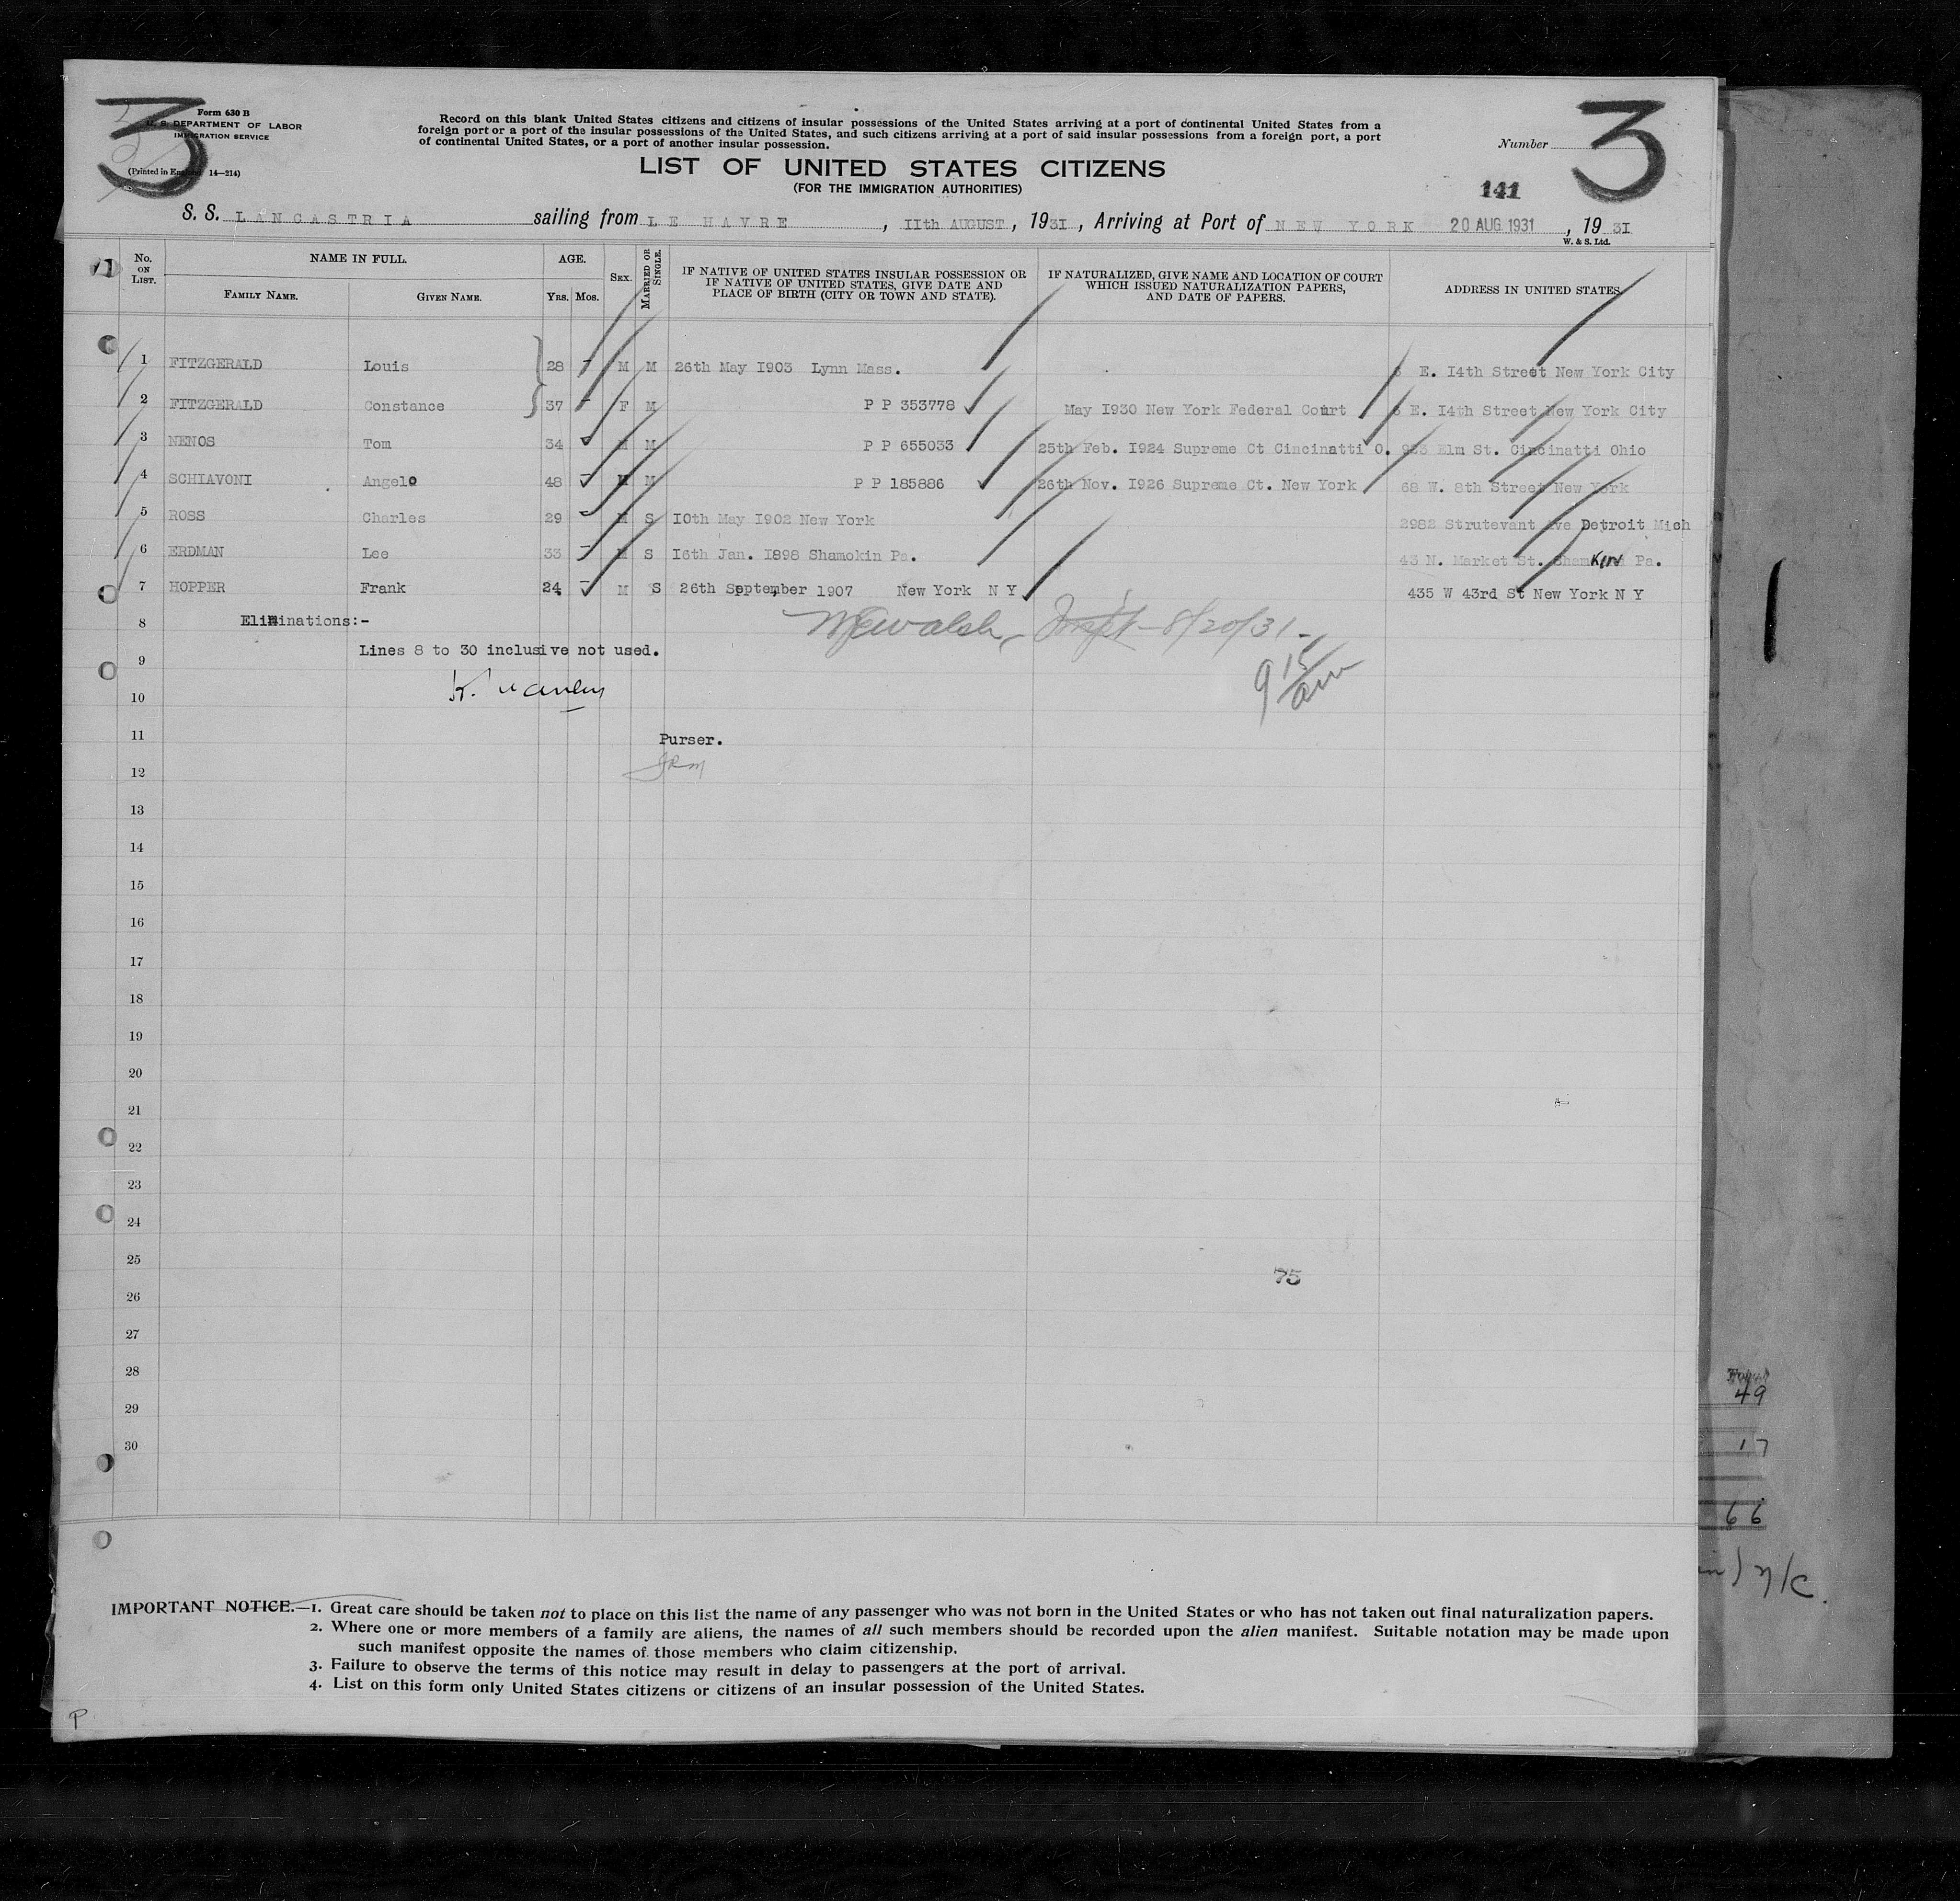 3
Form 630 B
U. S. DEPARTMENT OF LABOR
IMMIGRATION SERVICE
(Printed in England 14—214)
Record on this blank United States citizens and citizens of insular possessions of the United States arriving at a port of continental United States from a
foreign port or a port of the insular possessions of the United States, and such citizens arriving at a port of said insular possessions from a foreign port, a port
of continental United States, or a port of another insular possession.
LIST OF UNITED STATES CITIZENS
(FOR THE IMMIGRATION AUTHORITIES)
Number
3
141
S. S. LANCASTRIA sailing from LE HAVRE, IIth AUGUST, 193I, Arriving at Port of NEW YORK 20 AUG 1931, 19 3I
W. & S. Ltd.
No. ON LIST. NAME IN FULL. AGE. SEX. MARRIED OR SINGLE. IF NATIVE OF UNITED STATES INSULAR POSSESSION OR IF NATIVE OF UNITED STATES, GIVE DATE AND PLACE OF BIRTH (CITY OR TOWN AND STATE). IF NATURALIZED, GIVE NAME AND LOCATION OF COURT WHICH ISSUED NATURALIZATION PAPERS, AND DATE OF PAPERS. ADDRESS IN UNITED STATES
FAMILY NAME. GIVEN NAME. YRS. MOS.
1 FITZGERALD Louis 28 - M M 26th May I903 Lynn Mass. E. I4th Street New York City
2 FITZGERALD Constance 37 - F M P P 353778 May I930 New York Federal Court E. I4th Street New York City
3 NENOS Tom 34 - M M P P 655033 25th Feb. I924 Supreme Ct Cincinatti O. Elm St. Cincinatti Ohio
4 SCHIAVONI Angelo 48 - M M P P 185886 26th Nov. I926 Supreme Ct. New York 68 W. 8th Street New York
5 ROSS Charles 29 - M S I0th May I902 New York 2982 Strutevant Ave Detroit Mich
6 ERDMAN Lee 33 - M S I6th Jan. I898 Shamokin Pa. 43 N. Market St. ShamKIN Pa.
7 HOPPER Frank 24 - M S 26th September 1907 New York N Y 435 W 43rd St New York N Y
8 Eliminations:- 8/20/31
Lines 8 to 30 inclusive not used.
9 9 15 am
10
11 Purser.
12 JRM
13
14
15
16
17
18
19
20
21
22
23
24
25
75
26
27
28
29
30
49
17
66
IMPORTANT NOTICE.—1. Great care should be taken not to place on this list the name of any passenger who was not born in the United States or who has not taken out final naturalization papers.
2. Where one or more members of a family are aliens, the names of all such members should be recorded upon the alien manifest. Suitable notation may be made upon
such manifest opposite the names of those members who claim citizenship.
3. Failure to observe the terms of this notice may result in delay to passengers at the port of arrival.
4. List on this form only United States citizens or citizens of an insular possession of the United States.
P